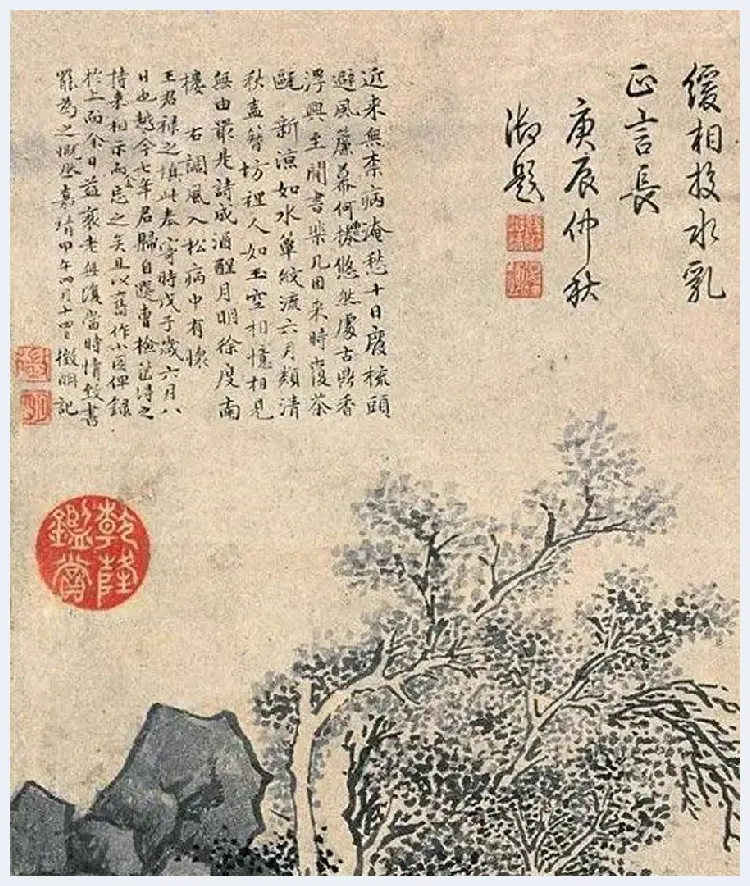 緩相投水乳
正言長
庚辰仲秋
御題
近來無柰病淹愁十日廢梳頭
避風簾幕何 悠然處古鼎香
浮興至閒書棐几困來時覆茶
甌 新涼如水簟紋流六月類清
秋盍簪坊裡人如玉空相憶相見
無由最是詩成酒醒月明徐度南
樓 右調風入松病中有懷
王君祿之填此奉寄時戊子歲六月八
日也越今七年君歸自選曹檢篋得之
持來相示而忘之矣且以舊作小圖俾錄
於上而余日益衰老無復當時情致書
罷為之慨然嘉靖甲午四月十四日徵明記
乾隆
鑑賞